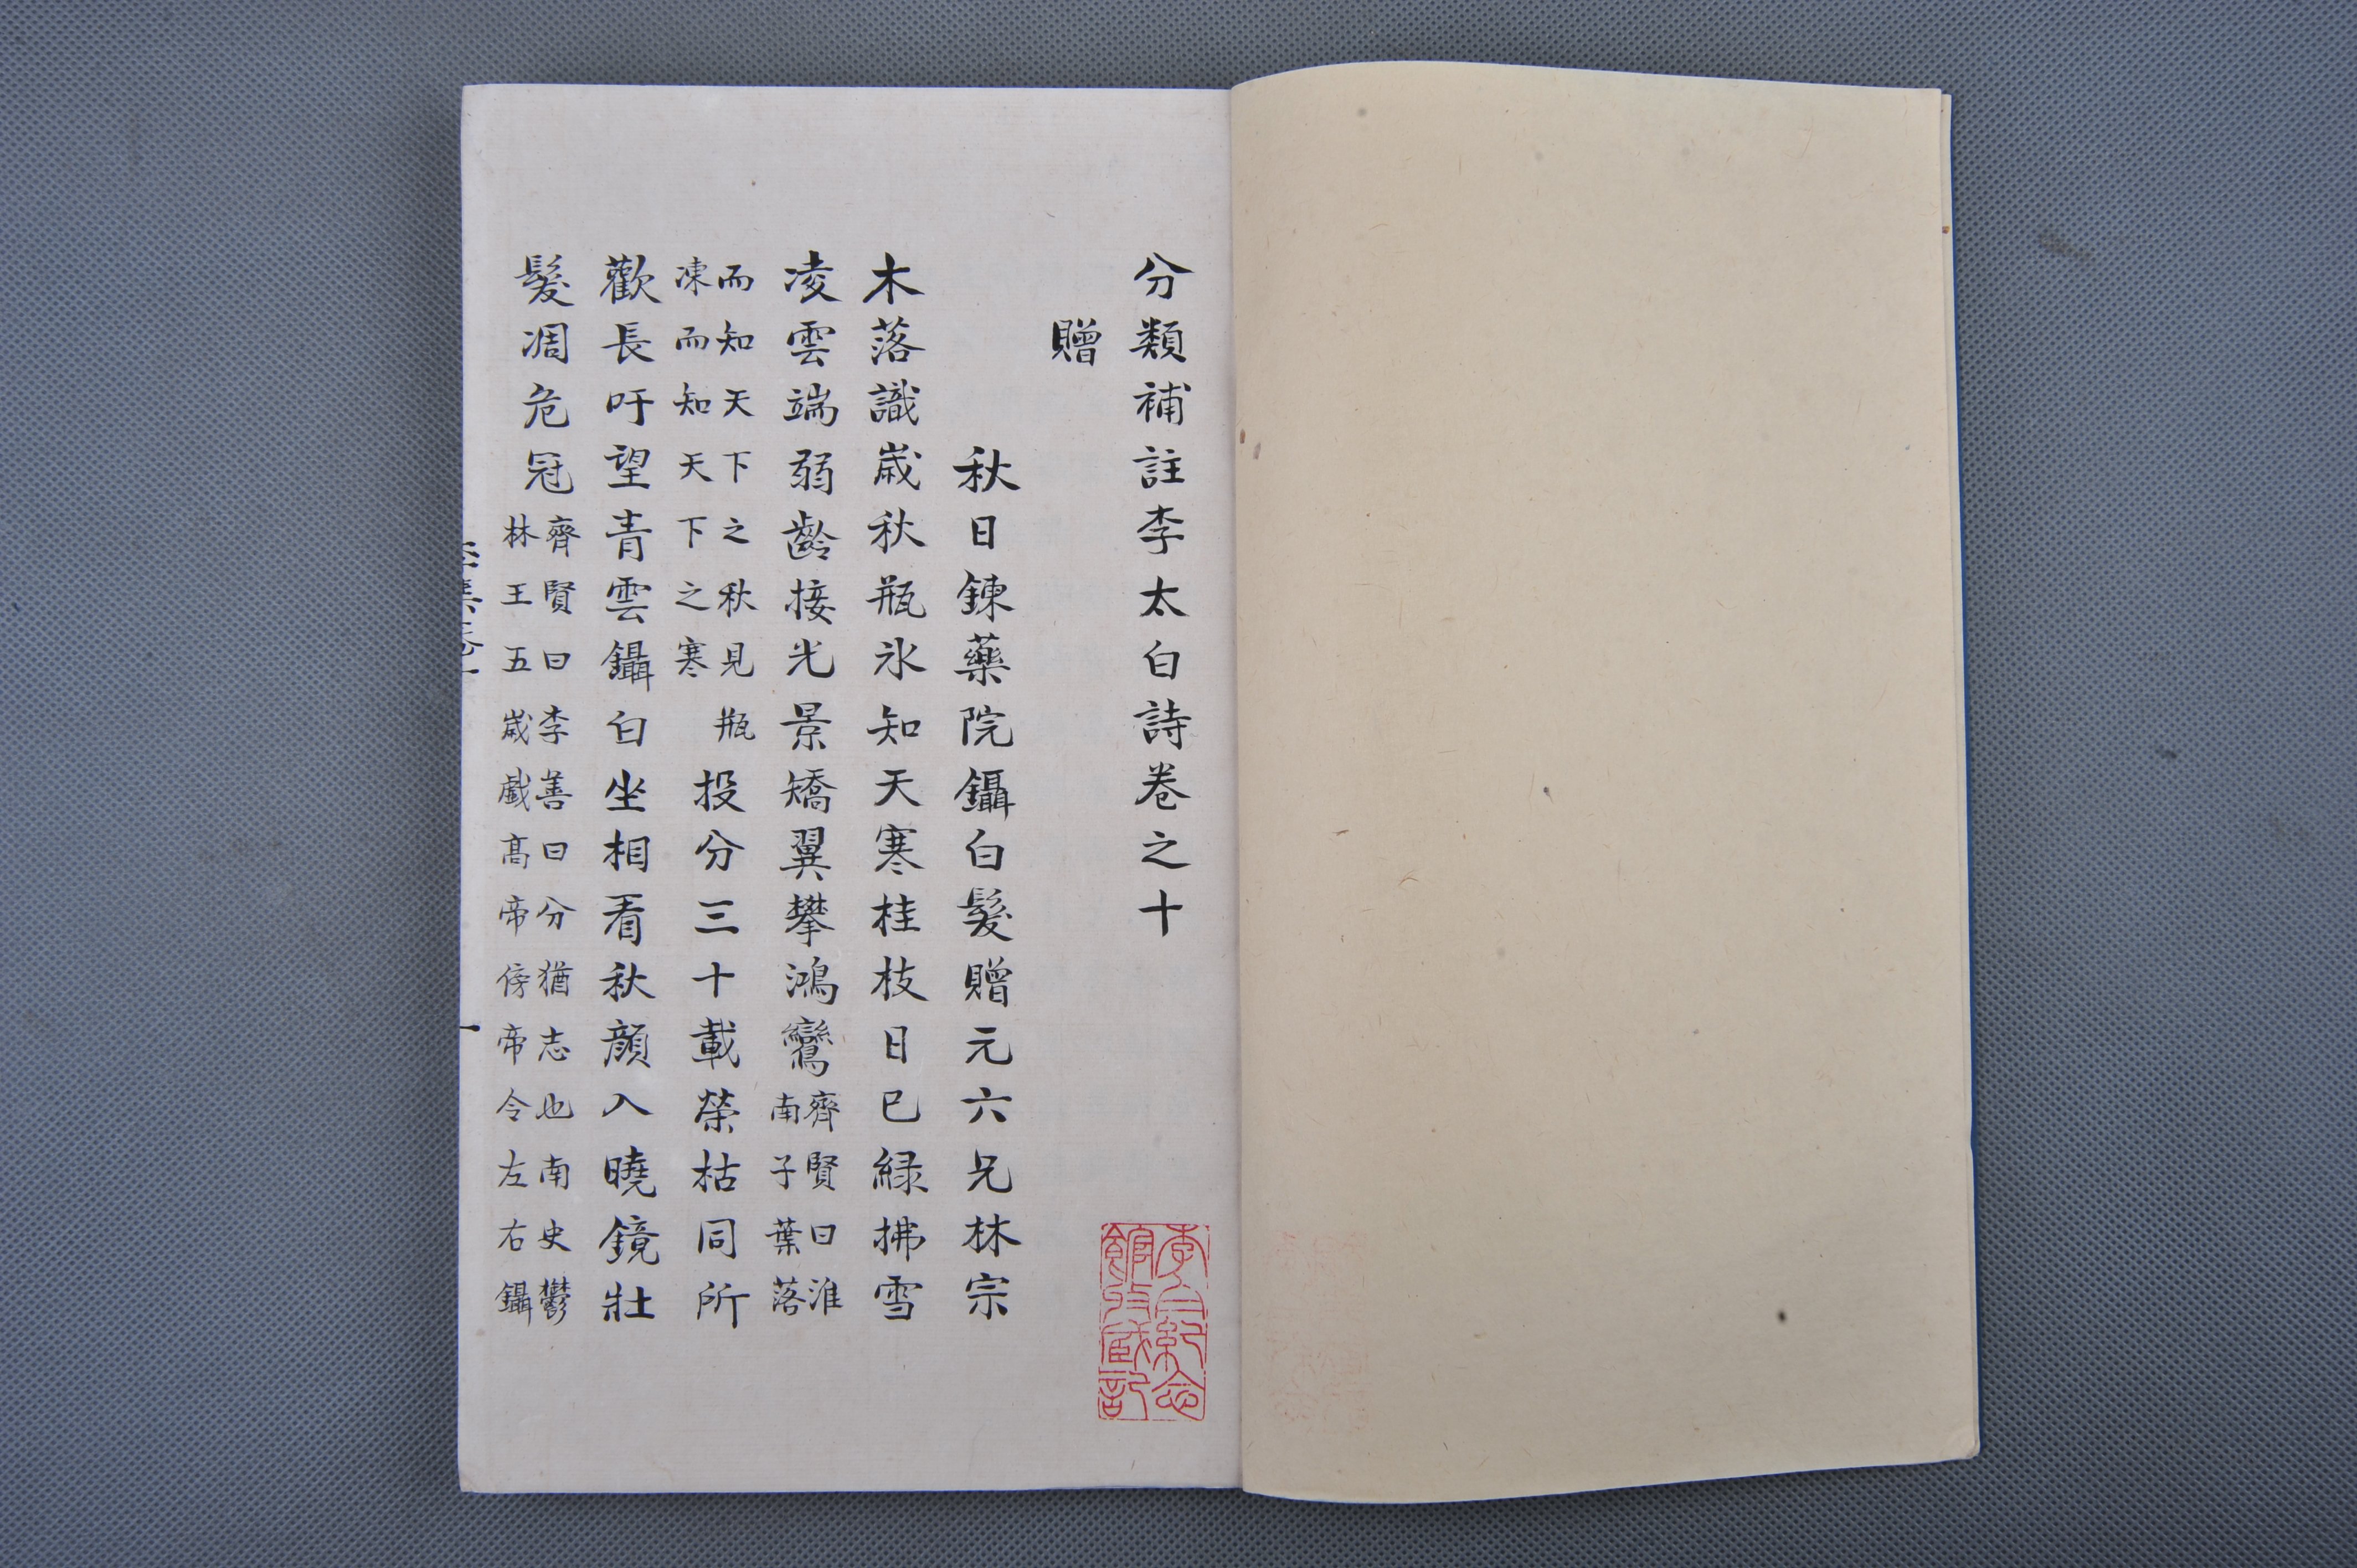 分類補註李太白詩卷之十
贈
秋日鍊藥院鑷白髮贈元六兄林宗
木落識歲秋瓶氷知天寒桂枝日已綠拂雪
凌雲端弱齡接光景矯翼攀鴻鸞齊賢曰淮南子葉落
而知天下之秋見瓶凍而知天下之寒投分三十載榮枯同所
歡長吁望青雲鑷白坐相看秋顔入曉鏡壯
髮凋危冠齊賢曰李善曰分猶志也南史鬱林王五歲戲髙帝傍帝令左右鑷
一
李白紀念館收藏記